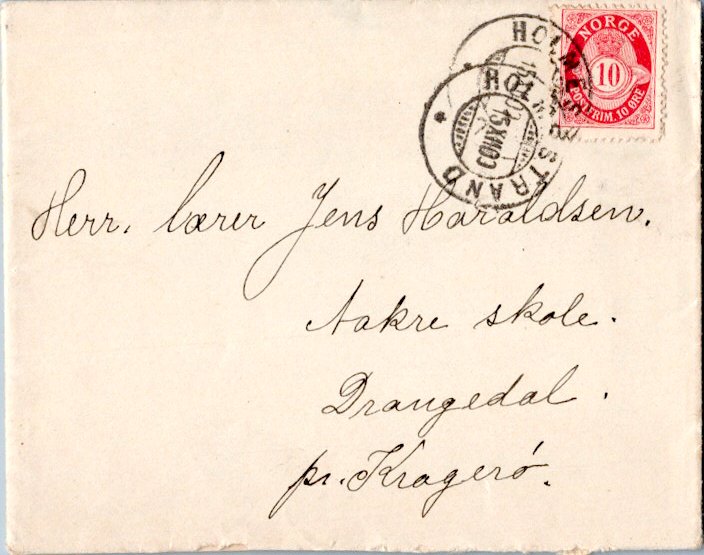 NORGE
10
POSTFRIM. 10 ØRE
HOLMESTRAND
15 XII 09
Herr. lærer Jens Haraldsen.
Aakre skole.
Drangedal.
pr. Kragerö.